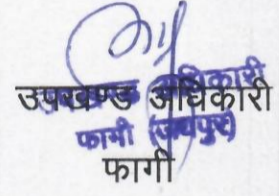 उपखण्ड अधिकारी
उपखण्ड अधिकारी
फागी (जयपुर)
फागी